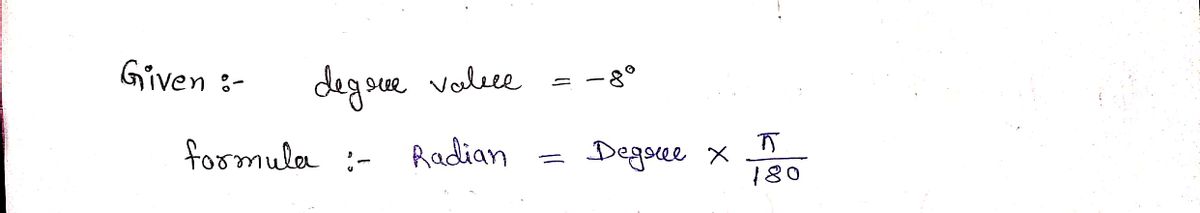 Given :- degree value = -8°
formula :- Radian = Degree × π/180